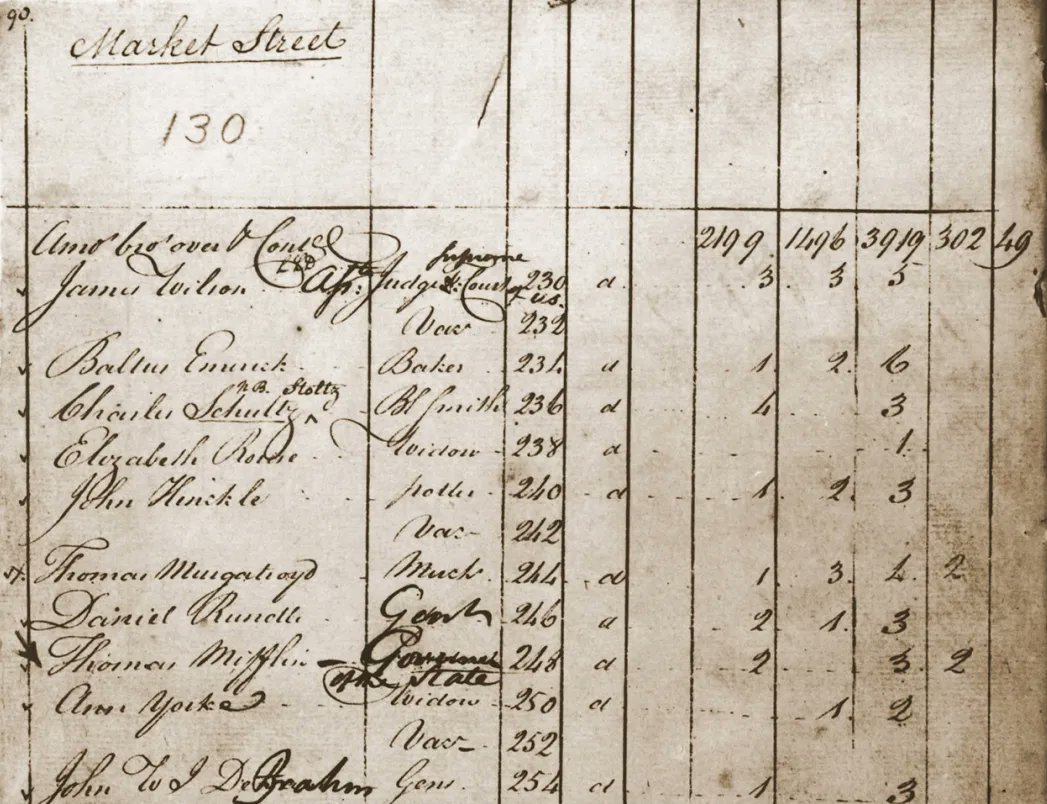 90.
Market Street
130
Amot bro't over & Cont'd 2199 1496 3919 302 49
James Wilson Asste Judge Supreme Court of US. 230 d 3 3 5
Vac 232
Baltus Emrick Baker 234 d 1 2 6
N.B. Stoltz
Charles Schultz ^ Bl Smith 236 d 4 3
Elizabeth Widow 238 d 1
John Hinckle potter 240 d 1 2 3
Vac 242
Thomas Murgatroyd 244 d 1 3 2 2
Daniel Rundle Gent 246 d 2 1 3
Thomas Mifflin – Governor of the State 248 d 2 3 2
Ann Yorke Widow 250 d 1 2
Vac 252
John W I De Brahm Gent 254 d 1 3